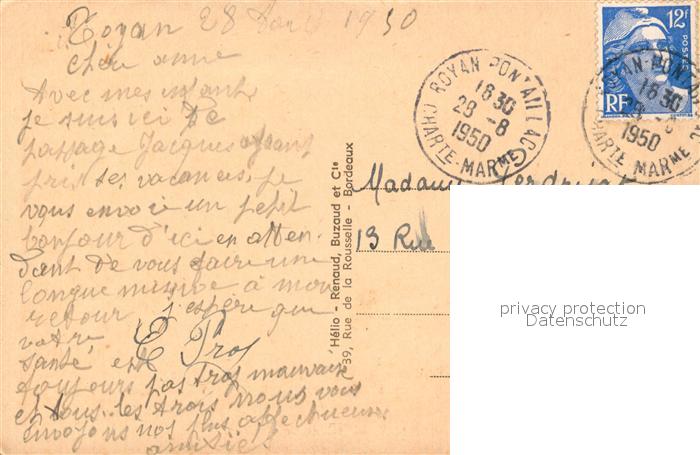 Royan 28 Août 1950
Chère anne
Avec mes enfants
je suis ici de
passage Jacques ayant
pris ses vacances, je
vous envoie un petit
bonjour d'ici en atten
dant de vous faire une
longue missive à mon
retour j'espère que
votre
santé est
toujours pas trop mauvaise
et tous les trois nous vous
envoyons nos plus affectueuses
amitiés
E Pros
Hélio - Renaud, Buzaud et Cie
39, Rue de la Rousselle - Bordeaux
12F
POSTES
RF
ROYAN PONTAILLAC
18 30
28 -8
1950
CHARTE-MARME
ROYAN-PONT
18 30
28 -8
1950
HARTE MARME
Madame
13 Rue
privacy protection
Datenschutz